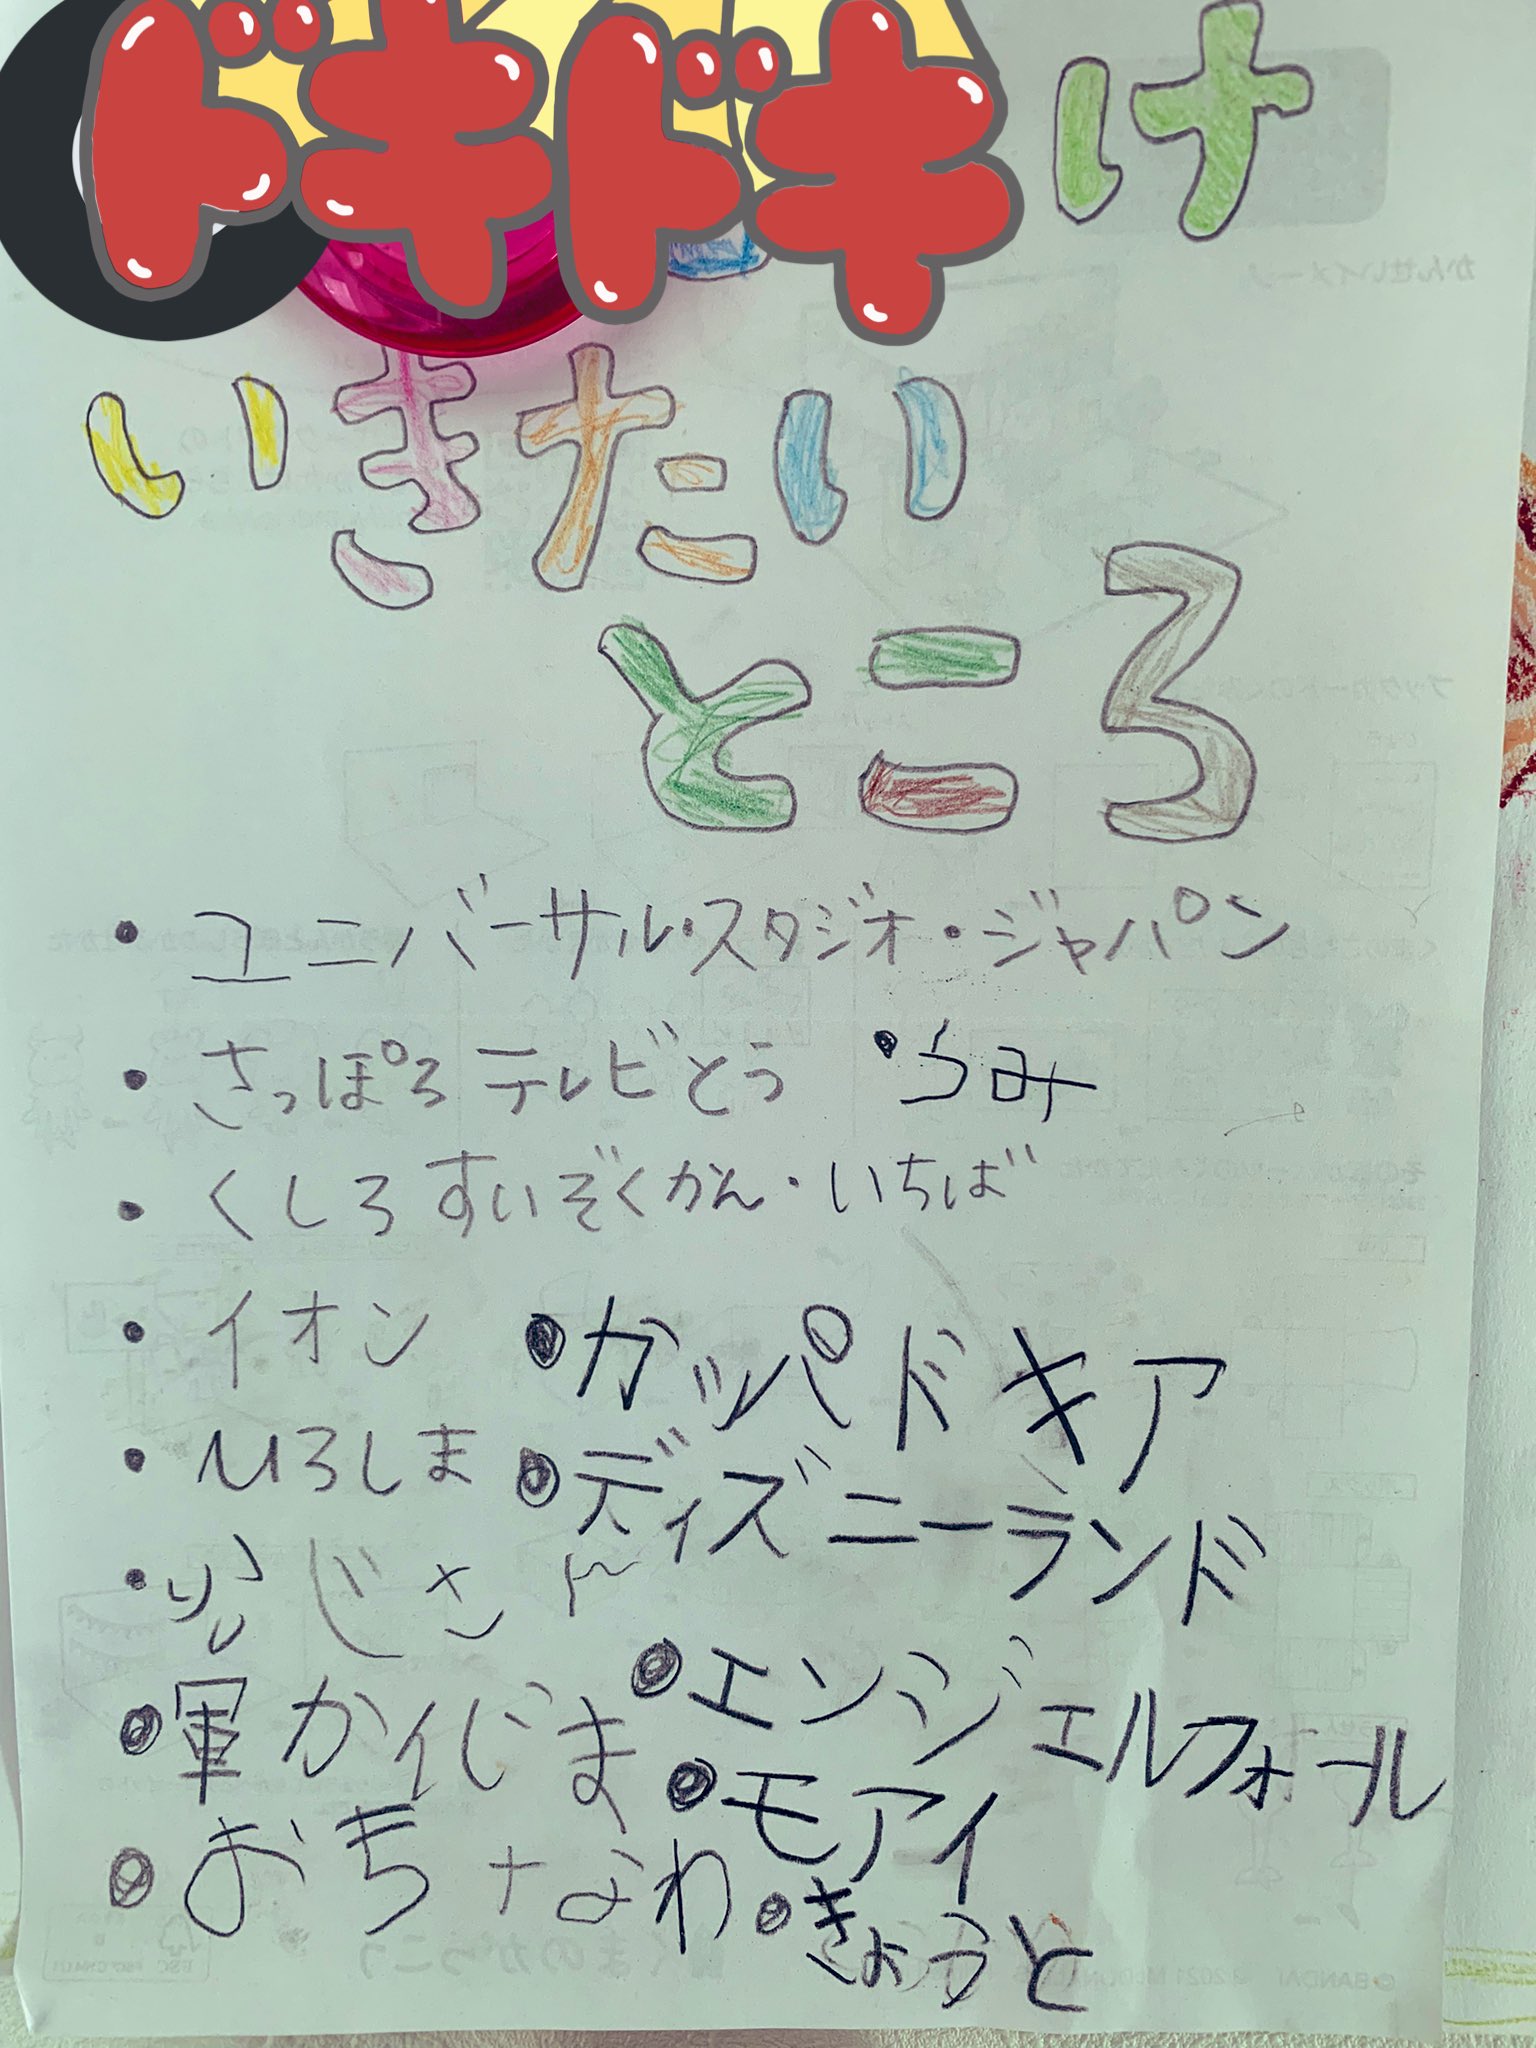 ドキドキ
け
いきたい
ところ
・ユニバーサル・スタジオ・ジャパン
・さっぽろテレビとう ・うみ
・くしろすいぞくかん・いちば
・イオン ・カッパドキア
・ひろしま ・ディズニーランド
・ふじさん
・軍かんじま ・エンジェルフォール
・おきなわ ・モアイ
・きょうと